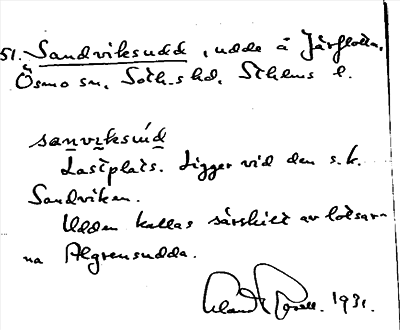 51. Sandviksudd, udde å Järflotta,
Ösmo sn, Soth-s hd, Sthlms l.
sanviksúd
Lastplats. Ligger vid den s.k.
Sandviken.
Udden kallas särskilt av lotsar-
na Algrensudda.
1931.